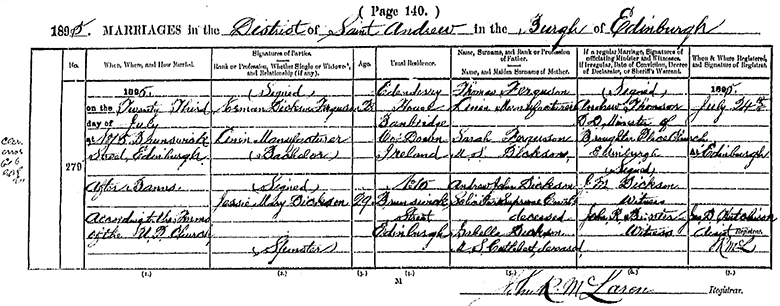 ( Page 140. )
1895. MARRIAGES in the District of Saint Andrew in the Burgh of Edinburgh
No. When, Where, and How Married. Signatures of Parties. Rank or Profession, Whether Single or Widowed, and Relationship (if any). Age. Usual Residence. Name, Surname, and Rank or Profession of Father. Name, and Maiden Surname of Mother. If a regular Marriage, Signatures of officiating Minister and Witnesses. If irregular, Date of Conviction, Decree of Declarator, or Sheriff's Warrant. When & Where Registered, and Signature of Registrar.
279
1895.
on the Twenty Third
day of July
at Brunswick
Street, Edinburgh
After Banns
According to the Forms
of the U. P. Church
(Signed)
Norman Dickson Ferguson
Linen Manufacturer
(Bachelor)
(Signed)
Jessie Mary Dickson
(Spinster)
29
Edenderry
House
Banbridge
Co: Down
Ireland
Brunswick
Street
Edinburgh
Thomas Ferguson
Linen Manufacturer
Sarah Ferguson
M.S. Dickson
Andrew John Dickson
Solicitor Supreme Courts
deceased
Isabella Dickson
M.S. Cuthbert deceased
(Signed)
Andrew Thomson
D.D. Minister of
Broughton Place Church
Edinburgh
(Signed)
Dickson
Witness
John R.
Witness
1895.
July 24th
at Edinburgh
Hutchison
Assist Registrar.
(1.) (2.) (3.) (4.) (5.) (6.) (7.)
M
John R. McLaren Registrar.